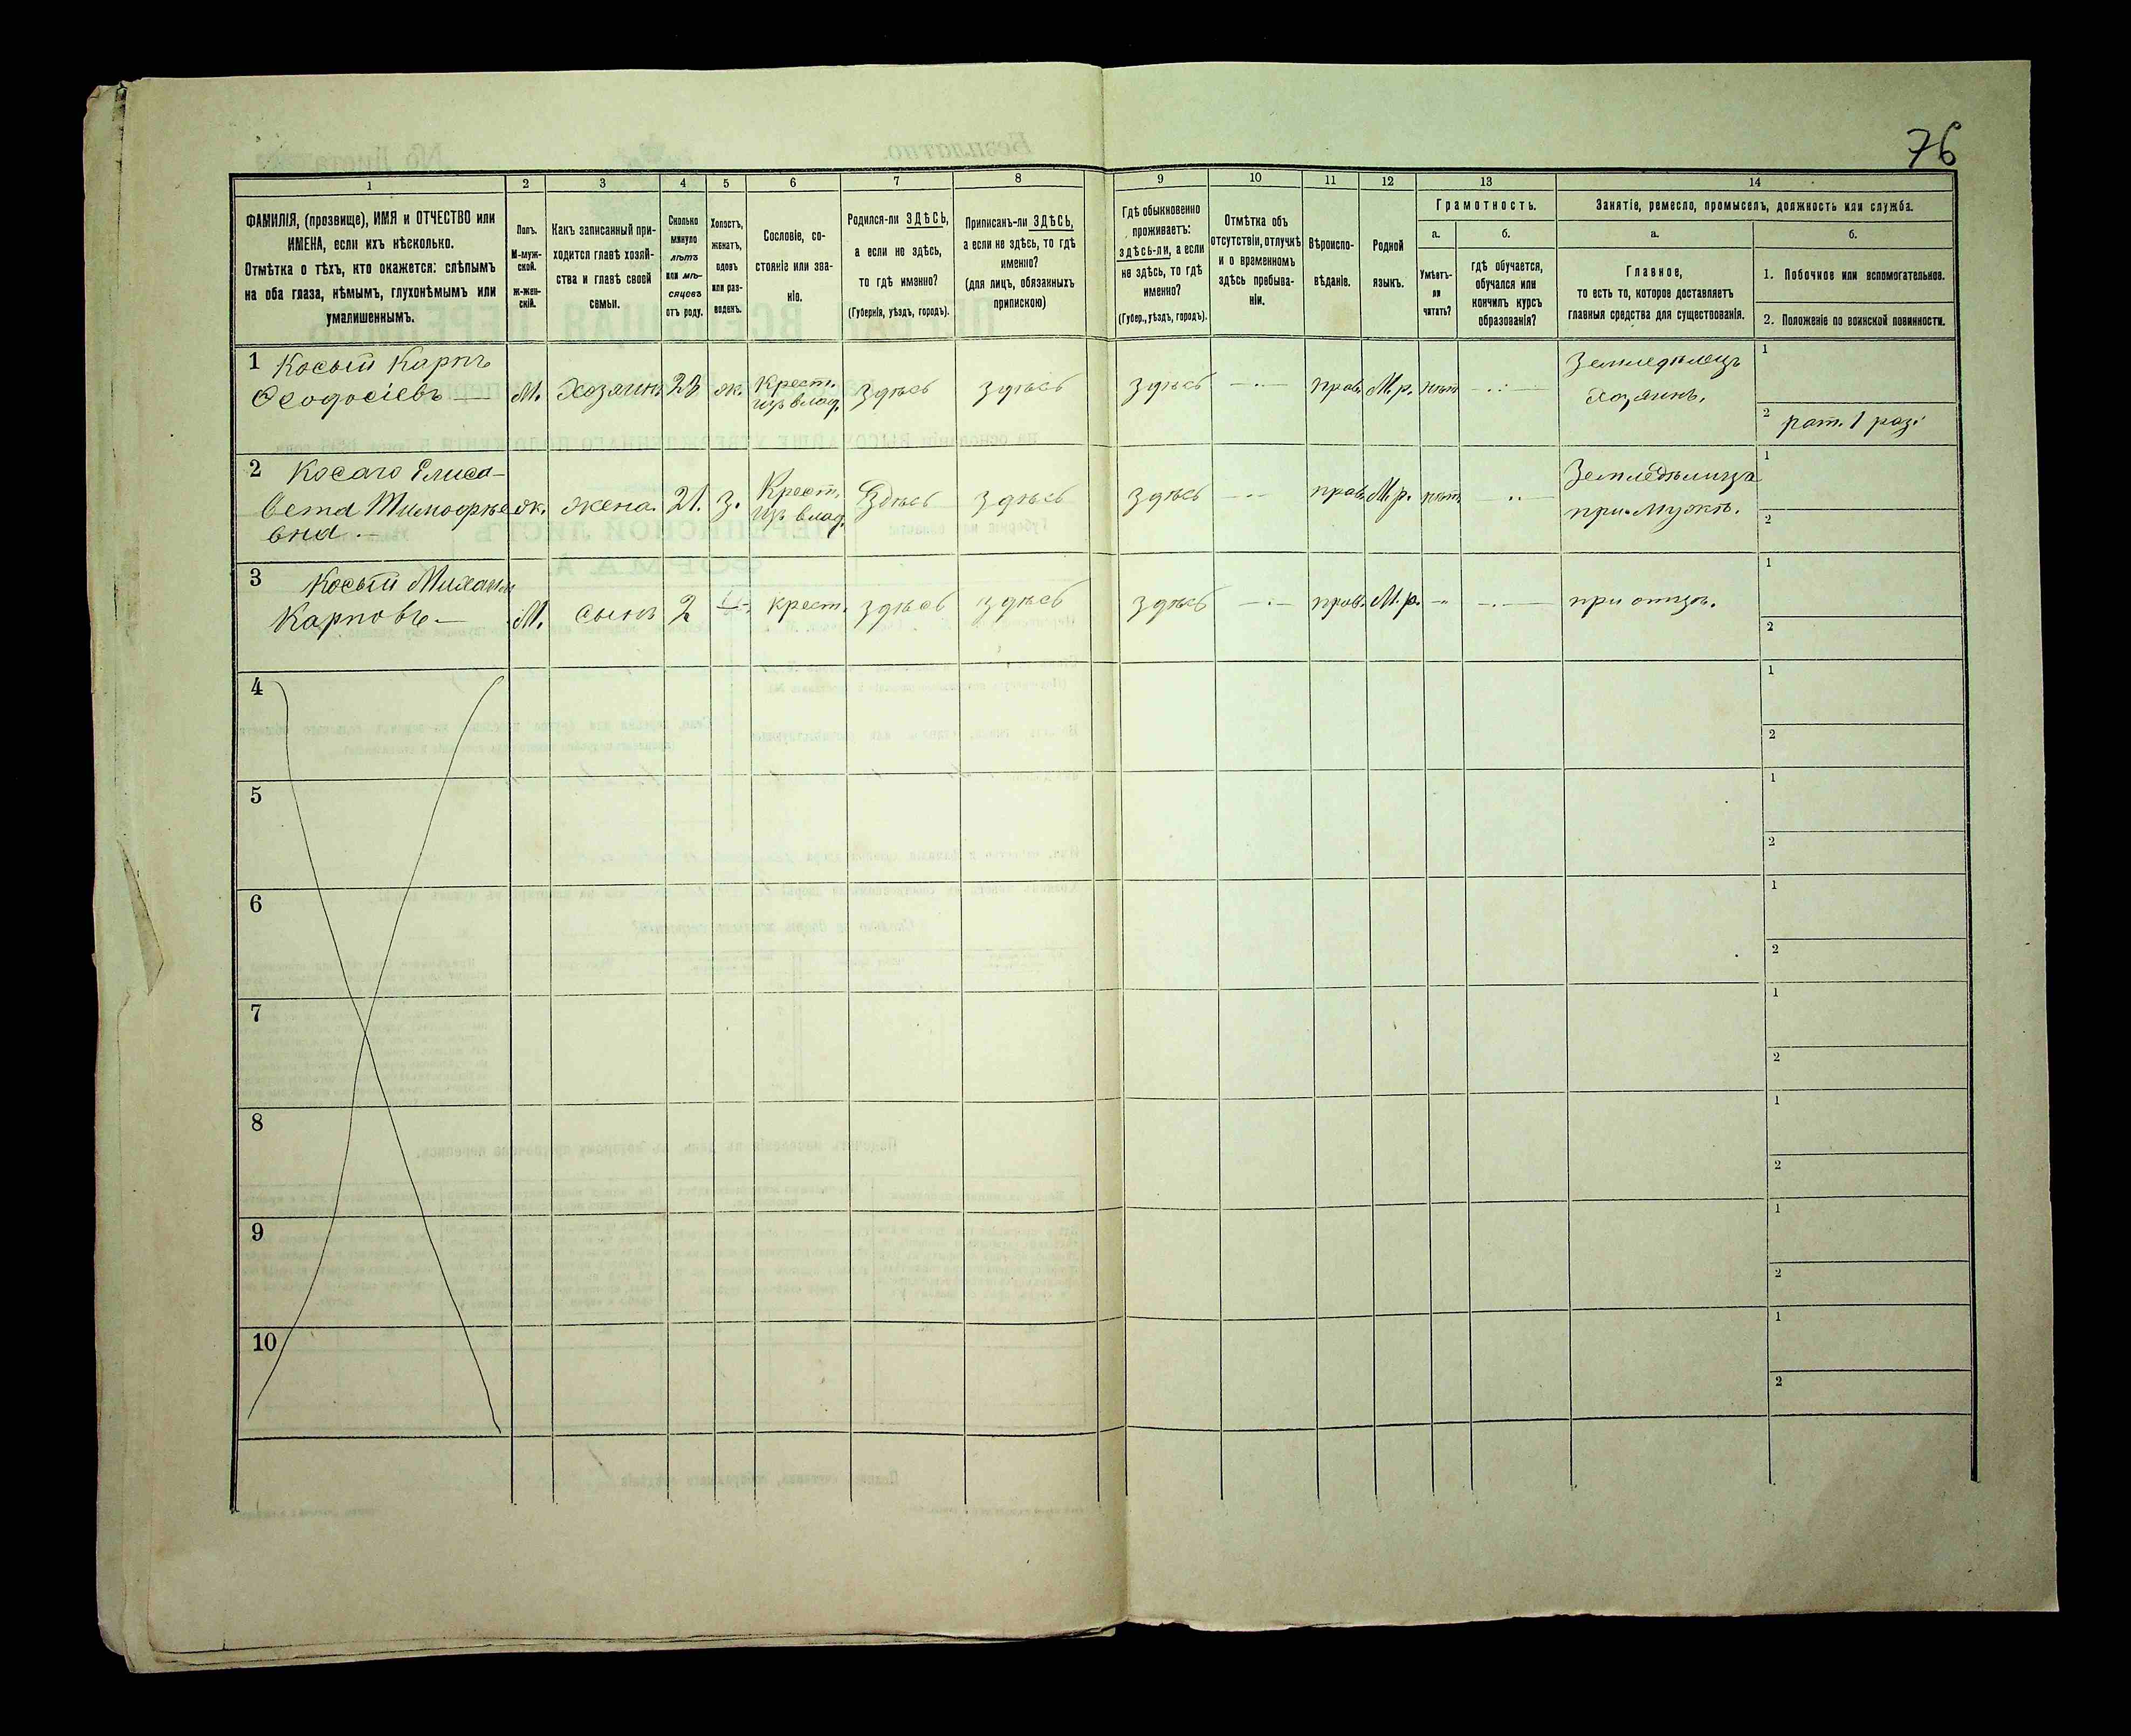 76
1
2
3
4
5
6
7
8
9
10
11
12
13
14
ФАМИЛІЯ, (прозвище), ИМЯ и ОТЧЕСТВО или
ИМЕНА, если ихъ нѣсколько.
Отмѣтка о тѣхъ, кто окажется: слѣпымъ
на оба глаза, нѣмымъ, глухонѣмымъ или
умалишеннымъ.
Полъ.
М-муж-
ской.
Ж-жен-
скій.
Какъ записанный при-
ходится главѣ хозяй-
ства и главѣ своей
семьи.
Сколько
минуло
лѣтъ
или мѣ-
сяцевъ
отъ роду.
Холостъ,
женатъ,
вдовъ
или раз-
веденъ.
Сословіе, со-
стояніе или зва-
ніе.
Родился-ли ЗДѢСЬ,
а если не здѣсь,
то гдѣ именно?
(Губернія, уѣздъ, городъ).
Приписанъ-ли ЗДѢСЬ,
а если не здѣсь, то гдѣ
именно?
(для лицъ, обязанныхъ
припискою)
Гдѣ обыкновенно
проживаетъ:
здѣсь-ли, а если
не здѣсь, то гдѣ
именно?
(Губер., уѣздъ, городъ).
Отмѣтка объ
отсутствіи, отлучкѣ
и о временномъ
здѣсь пребыва-
ніи.
Вѣроиспо-
вѣданіе.
Родной
языкъ.
Грамотность.
а.
Умѣетъ-
ли
читать?
б.
гдѣ обучается,
обучался или
кончилъ курсъ
образованія?
Занятіе, ремесло, промыселъ, должность или служба.
а.
Главное,
то есть то, которое доставляетъ
главныя средства для существованія.
б.
1. Побочное или вспомогательное.
2. Положеніе по воинской повинности.
1 Косый Карпъ
Ѳеодосіевъ —
М.
Хозяинъ
23
ж.
Крест.
изъ влад.
здѣсь
здѣсь
здѣсь
—·—
прав.
М.р.
нѣтъ
—·—
Земледѣлецъ
Хозяинъ.
1
2 рат. 1 раз.
2 Косаго Елиса-
вета Тимофѣе
вна.—
ж.
жена.
21.
з.
Крест.
изъ влад.
Здѣсь
здѣсь
здѣсь
—·—
прав.
М.р.
нѣтъ
—··—
Земледѣлица
при мужѣ.
1
2
3 Косый Михаилъ
Карповъ—
М.
сынъ
2
крест.
здѣсь
здѣсь
здѣсь
—·—
прав.
М.р.
—"
—·—
при отцѣ.
1
2
4
1
2
5
1
2
6
1
2
7
1
2
8
1
2
9
1
2
10
1
2